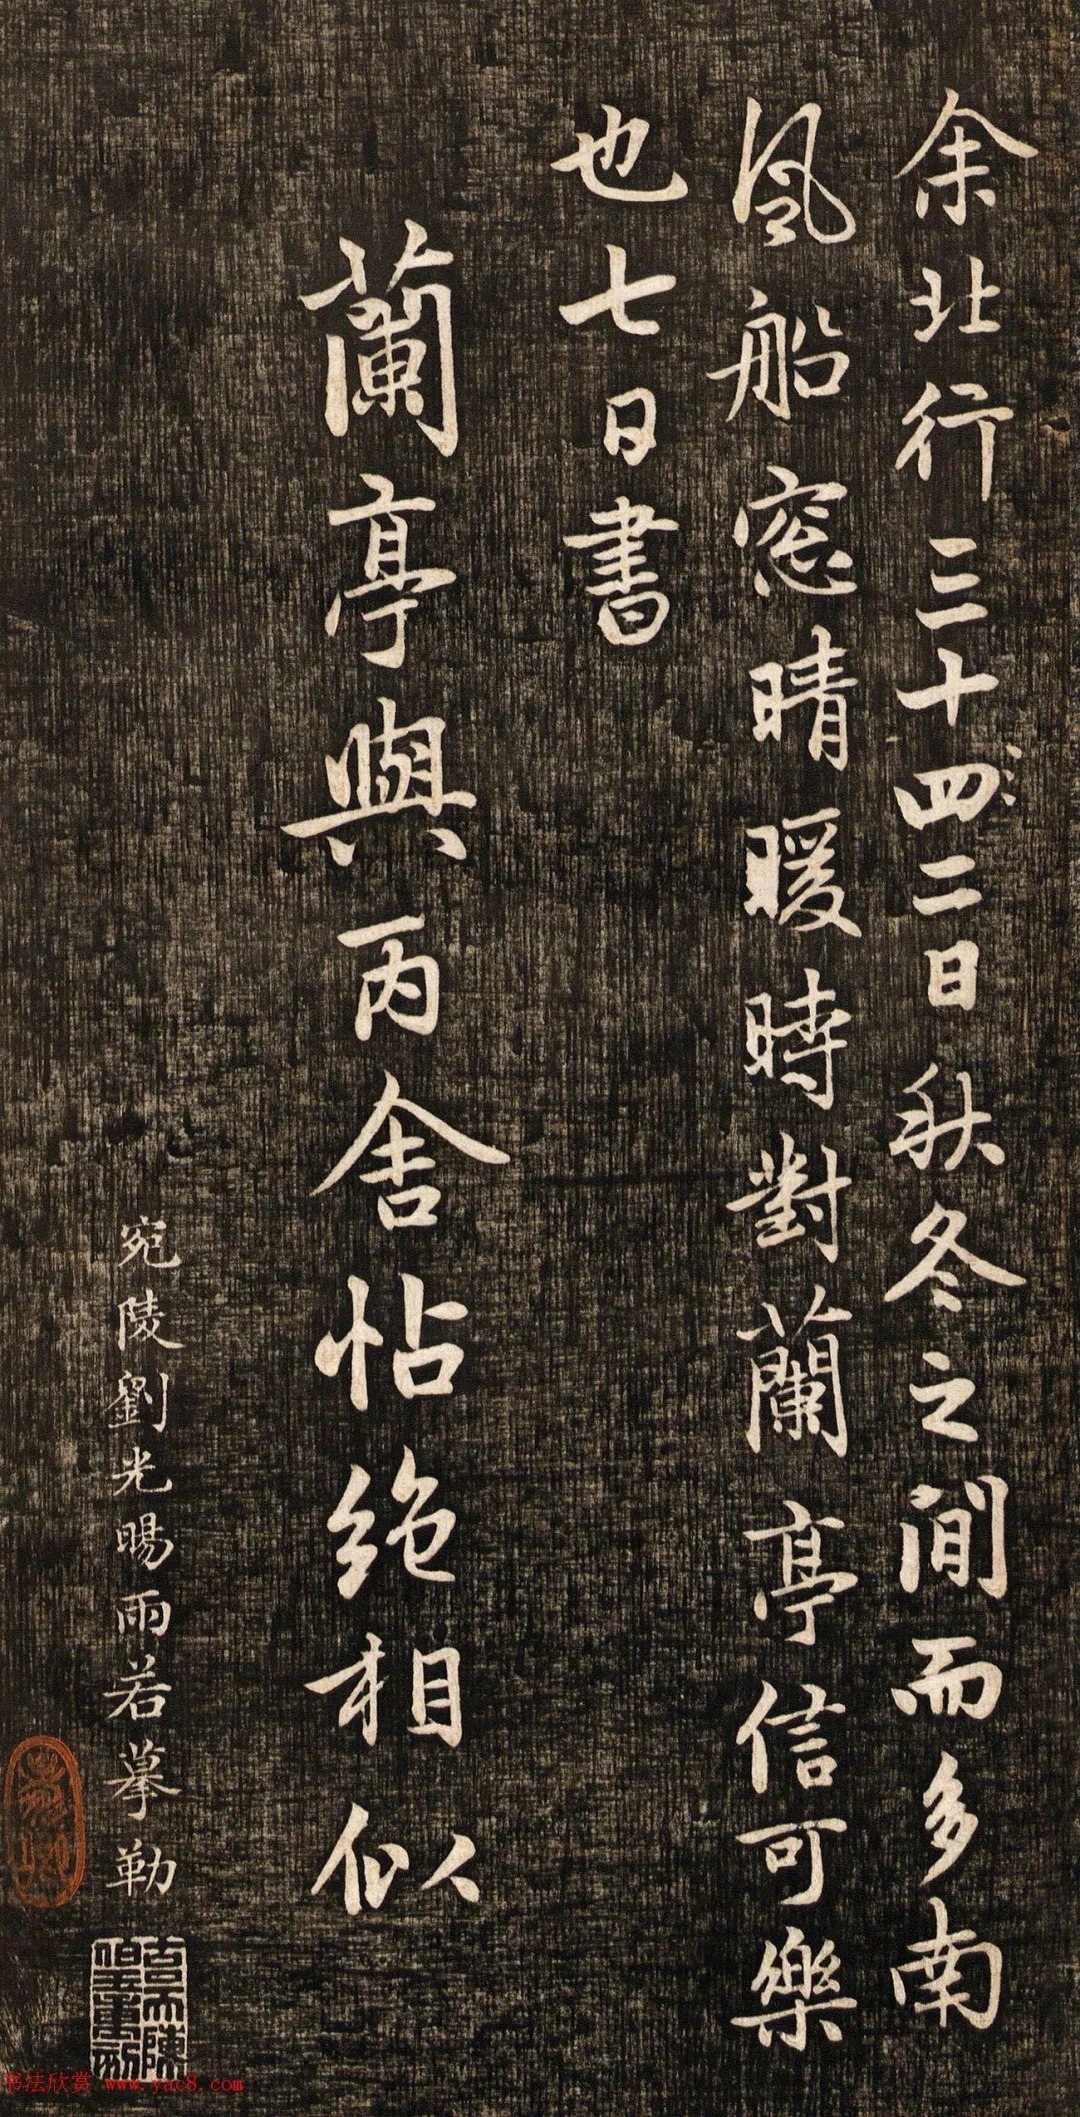 余北行三十二日秋冬之間而多南
風船窓晴暖時對蘭亭信可樂
也七日書
蘭亭與丙舍帖絶相似
宛陵劉光暘雨若摹勒
书法欣赏 www.yac8.com